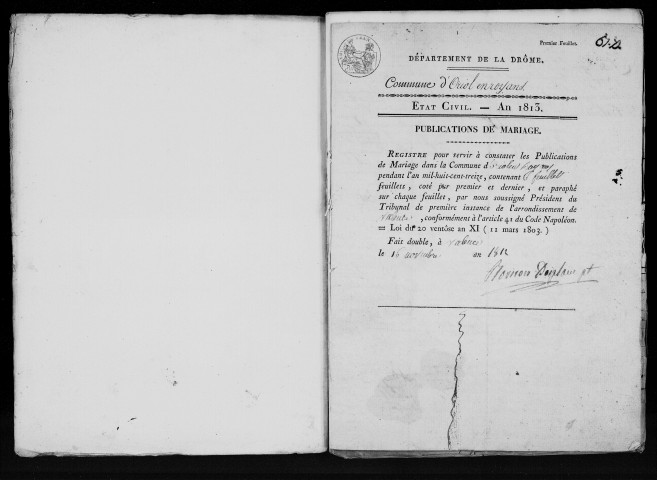 Premier Feuillet.
DÉPARTEMENT DE LA DRÔME.
Commune d'Oriol en royans
ETAT CIVIL. — AN 1813.
PUBLICATIONS DE MARIAGE.
REGISTRE pour servir à constater les Publications
de Mariage dans la Commune d
pendant l'an mil-huit-cent-treize, contenant 6 feuillets
feuillets, coté par premier et dernier, et paraphé
sur chaque feuillet, par nous soussigné Présidens du
Tribunal de première instance de l'arrondissement de
valence, conformément à l'article 41 du Code Napoléon.
= Loi du 20 ventôse an XI ( 11 mars 1803. )
Fait double, à valence
le 16 novembre an 1812